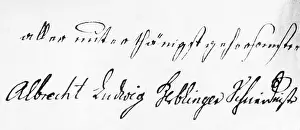 aller unterthänigst gehorsamster
Albrecht Ludwig Heblinger